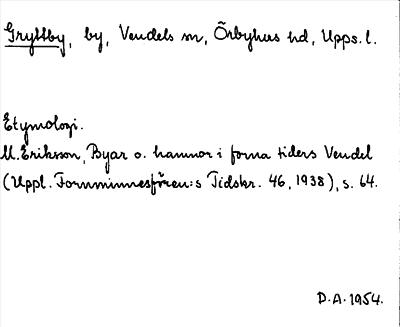 Gryttby, by, Vendels sn, Örbyhus hd, Upps. l.
Etymologi.
M. Eriksson, Byar o. hamnor i forna tiders Vendel
(Uppl. Fornminnesfören:s Tidskr. 46, 1938), s. 64.
D.A. 1954.